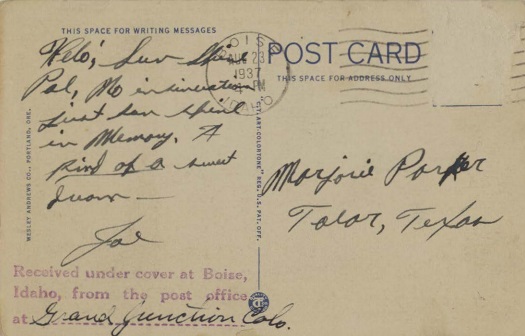 THIS SPACE FOR WRITING MESSAGES
POST CARD
THIS SPACE FOR ADDRESS ONLY
BOISE
AUG 23
1937
PM
IDAHO
Helo, Sun Shine
Pal, No insinuation
Just sun shine
in Memory. A
Kind of a sweet
Joe
Marjorie Parker
Tolar, Texas
WESLEY ANDREWS CO., PORTLAND, ORE.
REG. U.S. PAT. OFF.
Received under cover at Boise,
Idaho, from the post office
at Grand Junction Colo.